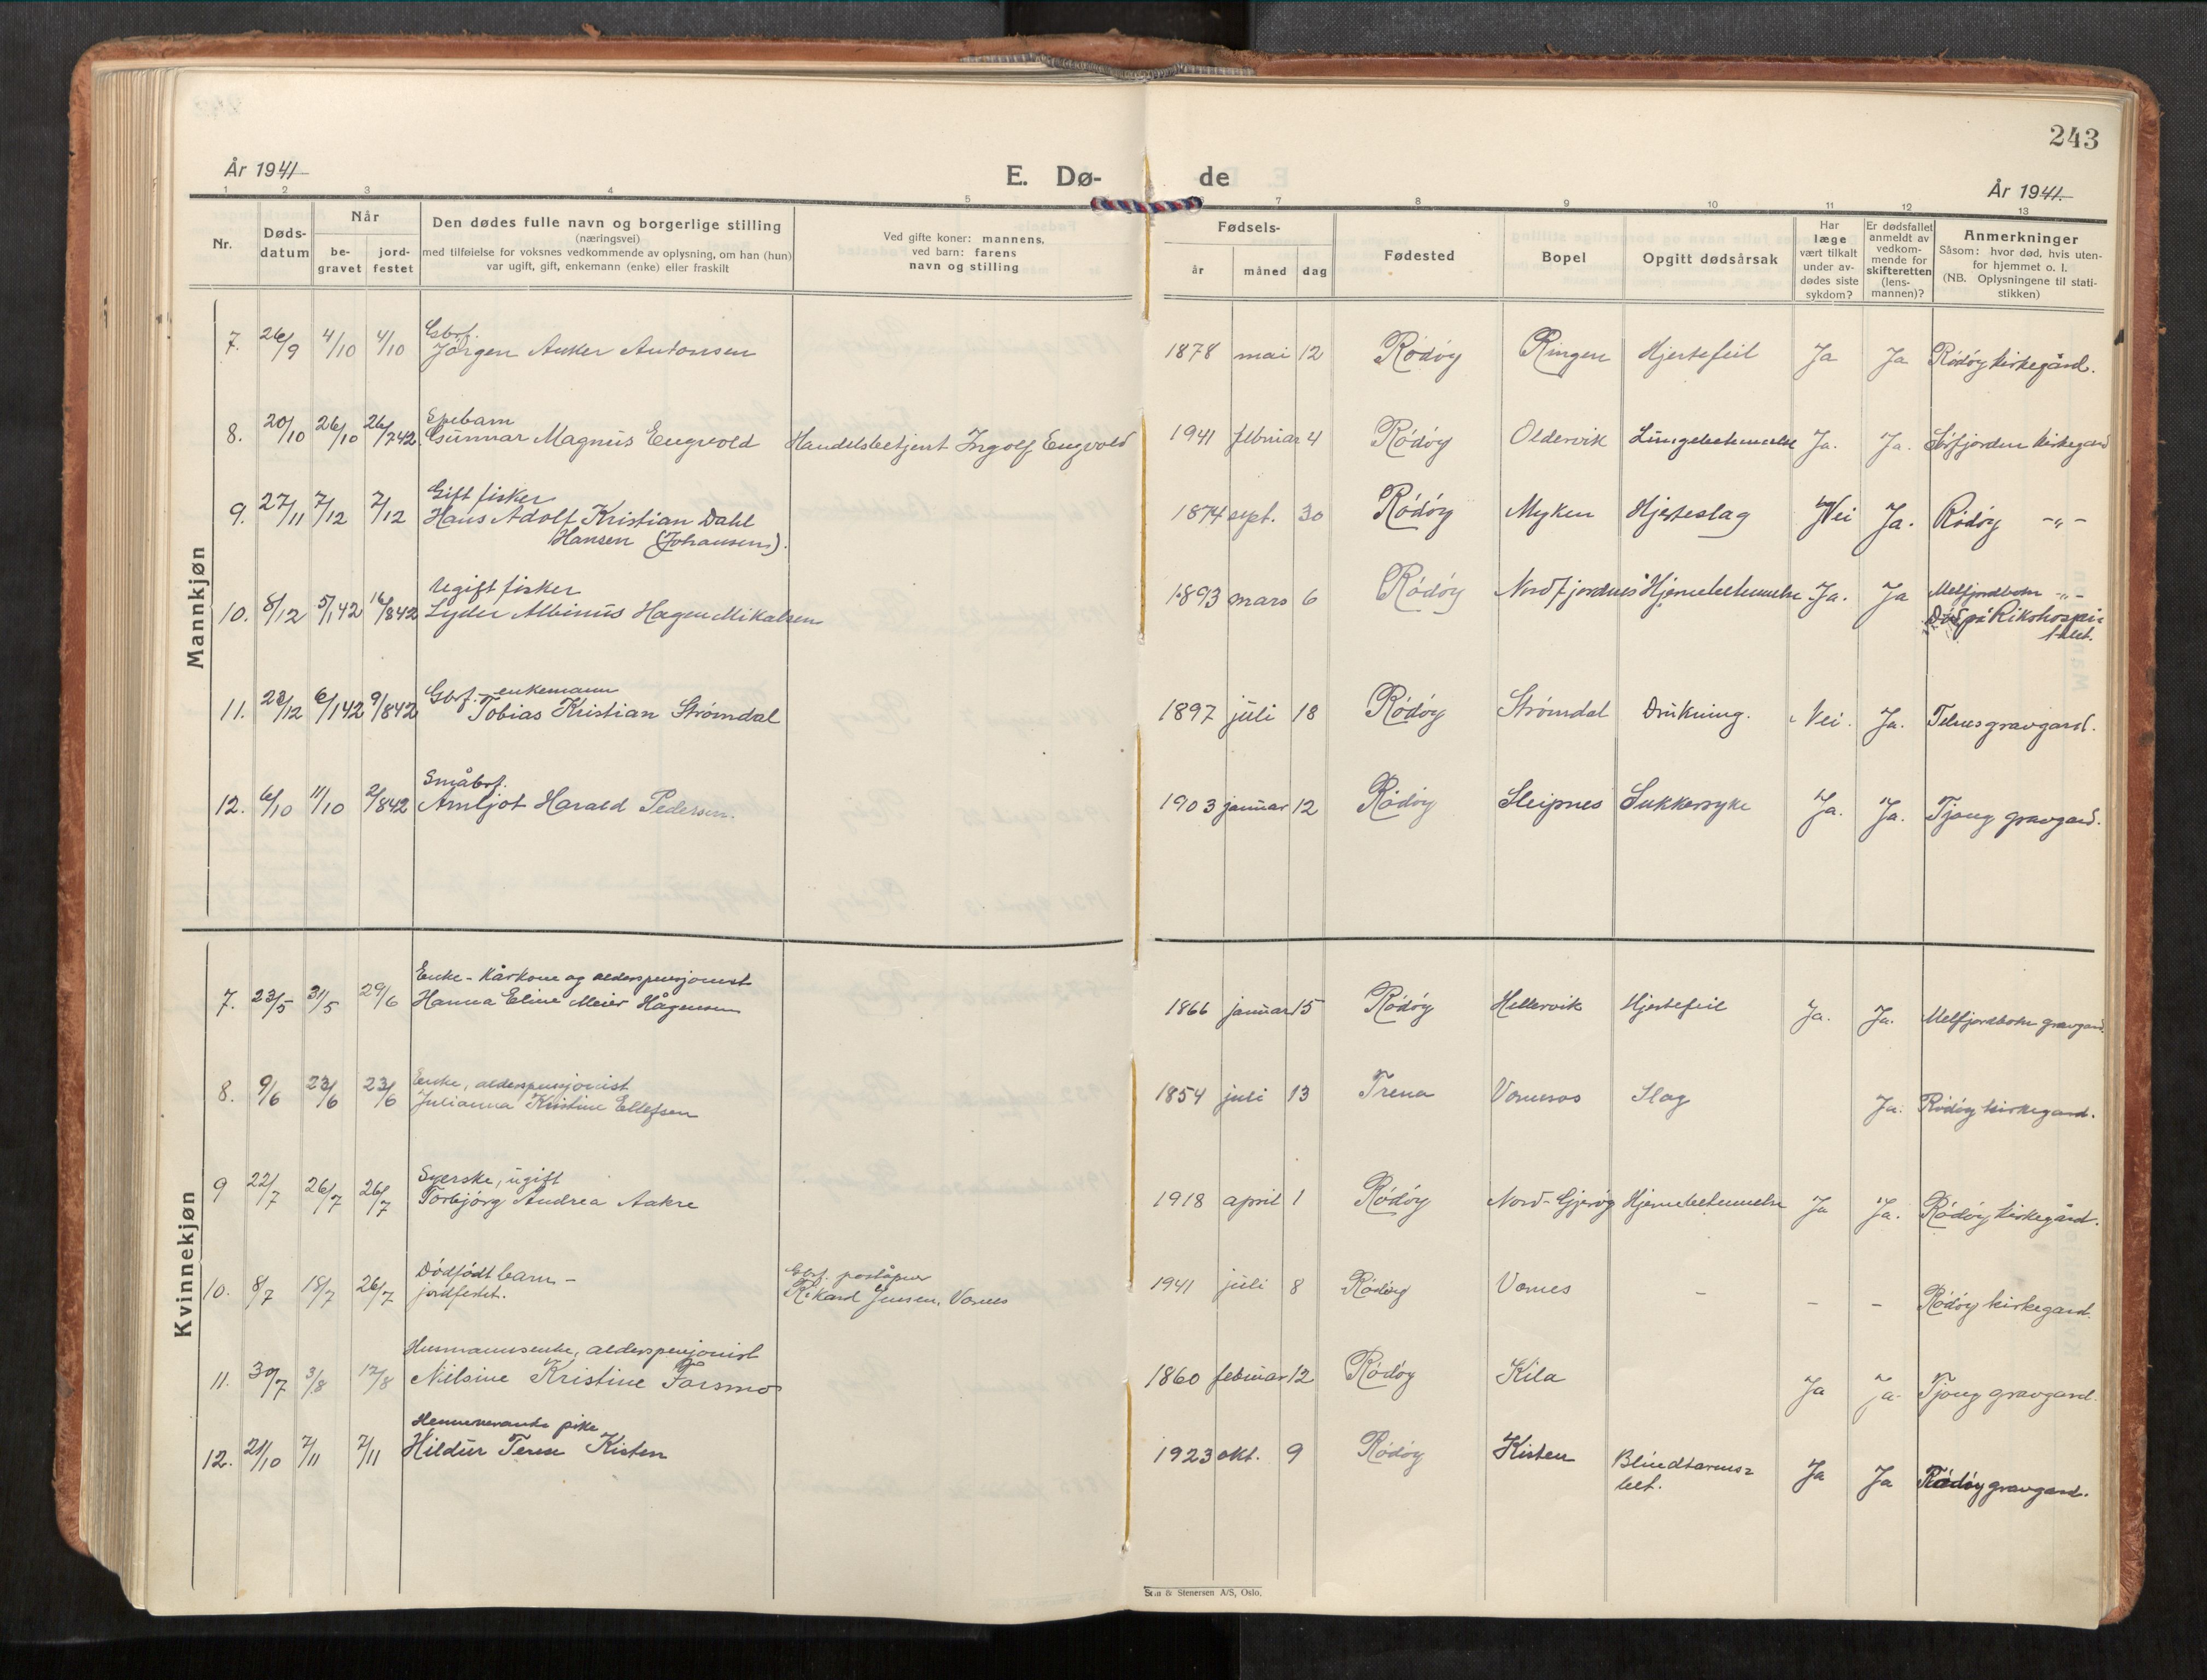 243
År 1941
E. Dø- de
År 1941.
1 2 3 4 5 7 8 9 10 11 12 13
Nr.
Døds-
datum
Når
be-
gravet
jord-
festet
Den dødes fulle navn og borgerlige stilling
(næringsvei)
med tilføielse for voksnes vedkommende av oplysning, om han (hun)
var ugift, gift, enkemann (enke) eller fraskilt
Ved gifte koner: mannens,
ved barn: farens
navn og stilling
Fødsels-
år måned dag
Fødested
Bopel
Opgitt dødsårsak
Har
læge
vært tilkalt
under av-
dødes siste
sykdom?
Er dødsfallet
anmeldt av
vedkom-
mende for
skifteretten
(lens-
mannen)?
Anmerkninger
Såsom: hvor død, hvis uten-
for hjemmet o. l.
(NB. Oplysningene til stati-
stikken)
Mannkjøn
Gbrf.
7. 26/9 4/10 4/10 Jörgen Anker Antonsen 1878 mai 12 Rödöy Ringen Hjertefeil Ja Ja Rödöy kirkegård.
Spebarn
8. 20/10 26/10 26/7 42 Gunnar Magnus Engvold Handelsbetjent Ingolf Engvold 1941 februar 4 Rödöy Oldervik Lungebetennelse Ja. Ja. Sörfjorden kirkegard
Gift fisker
9. 27/11 7/12 7/12 Hans Adolf Kristian Dahl 1874 sept. 30 Rödöy Myken Hjerteslag Nei Ja. Rödöy -"-
Hansen (Johansens).
Ugift fisker
10. 8/12 5/1 42 16/8 42 Lyder Albinus Hagen Mikalsen 1893 mars 6 Rödöy Nordfjordnes Hjernebetennelse Ja. Ja Melfjordbotn -"-
Död på Rikshospi-
talet.
Gbrf. enkemann
11. 28/12 6/1 42 9/8 42 Tobias Kristian Strömdal 1897 juli 18 Rödöy Strömdal Drukning. Nei. Ja. Telnes gravgard.
Småbrf.
12. 6/10 11/10 2/8 42 Arnljot Harald Pedersen. 1903 januar 12 Rödöy Sleipnes Sukkersyke Ja. Ja. Tjong gravgard.
Kvinnekjøn
Enke - kårkone og alderspensjonist
7. 23/5 31/5 29/6 Hanna Eline Meier Hågensen 1866 januar 15 Rödöy Hellervik Hjertefeil Ja. Ja. Melfjordbotn gravgard.
Enke, alderspensjonist
8. 9/6 23/6 23/6 Julianna Kristine Ellefsen 1854 juli 13 Trena Slag Ja. Rödöy kirkegard.
Syerske, ugift
9 22/7 26/7 26/7 Torbjörg Andrea Aakre 1918 april 1 Rödöy Nord-Gjeröy Hjernebetennelse Ja Ja. Rödöy kirkegård.
Dödfödt barn - Gbrf. poståpner
10. 8/7 18/7 26/7 jordfestet. Rikard Jensen, Vornes 1941 juli 8 Rödöy Vornes - - - Rödöy kirkegard.
Husmannsenke, alderspensjonist
11. 30/7 3/8 12/8 Nilsine Kristine Forsmo 1860 februar 12 Rödöy Kila Ja Ja. Tjong gravgard.
Hemmeværande pike
12. 21/10 7/11 7/11 Hildur Terese Kisten 1923 okt. 9 Rödöy Kisten Blindtarms= Ja Ja Rödöy gravgard.
bet.
Sem & Stenersen A/S, Oslo.